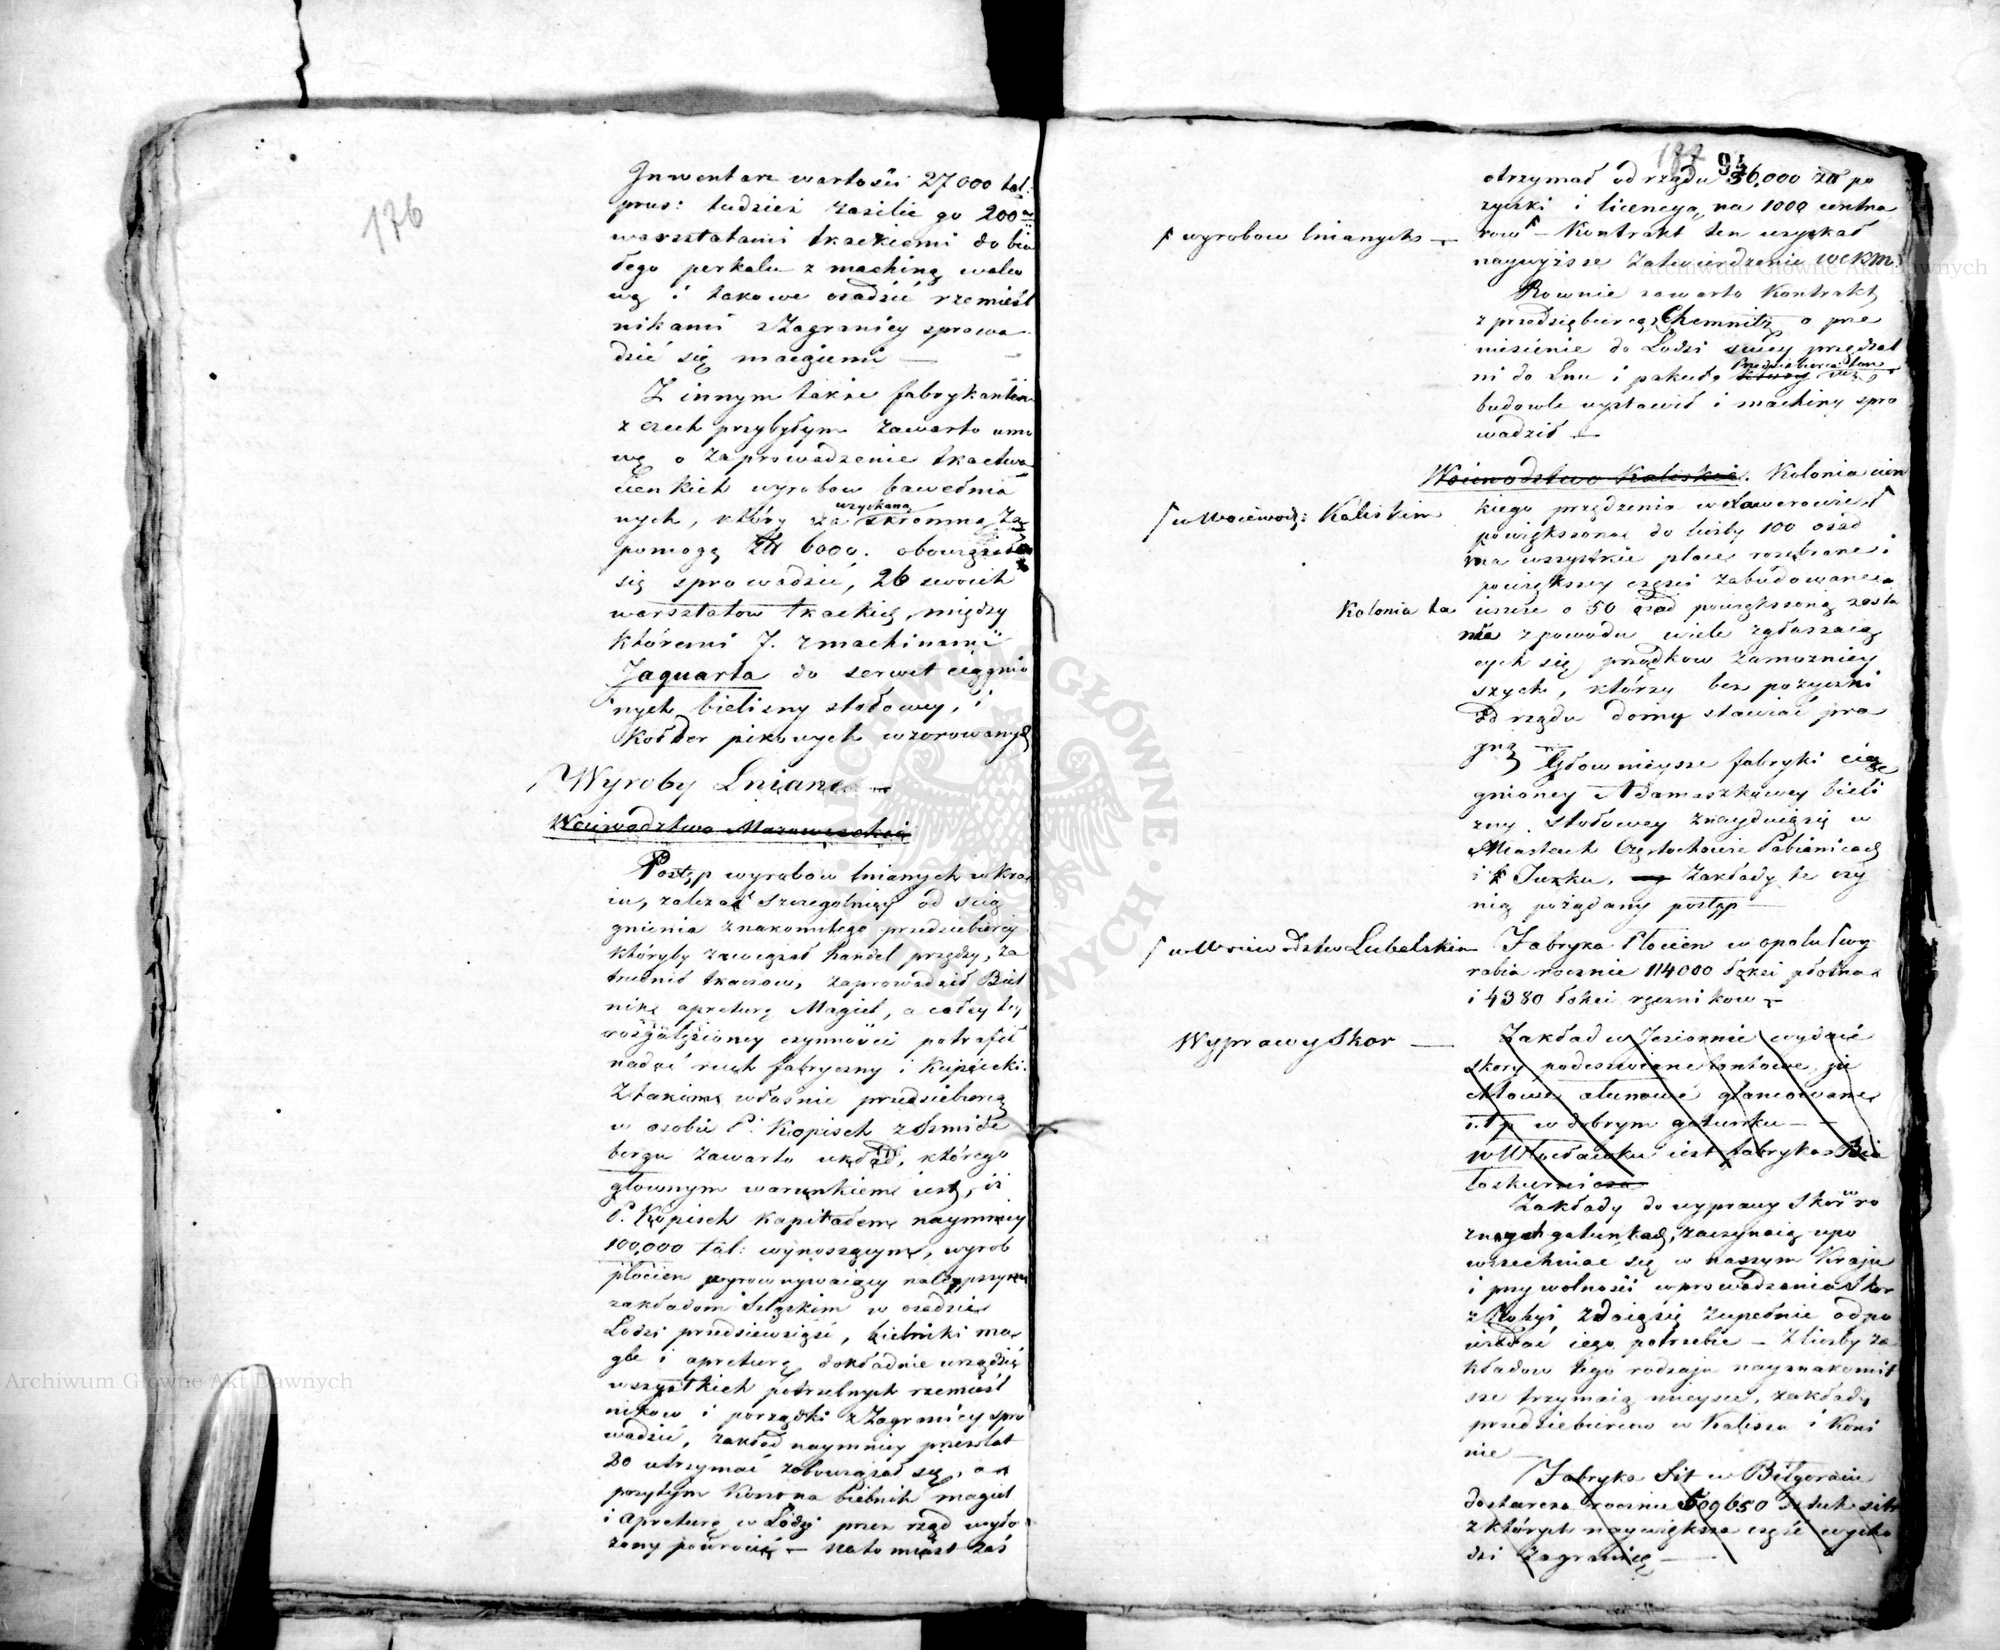 176
Inwentarz wartości 27000 tal:
prus: tudzież zasilić go 200
warsztatami tkackiemi do bia
łego perkalu z machiną walco
wą i takowe osadzić rzemieśl
nikami z Zagranicy sprowa
dzić się maiącemi —
Z innym także fabrykantem
z Czech przybyłym zawarto umo
wę o zaprowadzenie tkactwa
cienkich wyrobow bawełnia
nych, który za uzyskaną skromną za
pomogę zł 6000. obowiązał
się sprowadzić, 26 swoich
warsztatow tkackich, między
któremi 7. z machinami
Jaquarta do serwet ciągnio
nych bielizny stołowey, i
kołder pikowych wzorowanych
Wyroby Lniane —
Woiewodztwo Mazowieckie
Postęp wyrobow lnianych w kra
iu, zależał szczegolniey od ścią
gnienia znakomitego przedsiebiercy
któryby zawiązał handel przędzy, za
trudnił tkaczow, zaprowadził Biel
nik, apreturę Magiel, a całey tey
rozgałęzioney czynności potrafił
nadać ruch fabryczny i Kupiecki.
Z takim właśnie przedsiebiercą
w osobie P. Kopisch z Szmide
bergu zawarto układ, którego
głownym warunkiem iest, iż
P. Kopisch kapitałem naymniey
100,000 tal: wynoszącym, wyrob
płócien wyrownywaiący nalepszym
zakładom Szląskim w osadzie
Łodzi przedsiewziąść, bielniki ma
gle i apreturę dokładnie urządzić
wszystkich potrzebnych rzemieśl
nikow i porządki z Zagranicy spro
wadzić, zakład naymniey przez lat
20 utrzymać zobowiązał się, a
przytym Koszta bielnik magiel
i apreturę w Łodzi przez rząd wyło
żony powrócić — natomiast zaś
187 94
otrzymał od rządu 36,000 zł po
życzki i licencyą na 1000 centna
wyrobow lnianych —
row — Kontrakt ten uzyskał
naywyższe zatwierdzenie WCKM
Rownie zawarto Kontrakt
z przedsiębiercą Chemnitz o prze
niesienie do Łodzi swey przędzal
ni do Lnu i pakuł, Przedsiebierca ten
budowle wystawił i machiny spro
wadził —
Woiewodztwo Kaliskie. Kolonia cien
w Woiewodz: Kaliskim
kiego przędzenia w Zawerowie
powiększona do liczby 100 osad
ma wszystkie place rozebrane i
powiększey części zabudowane
Kolonia ta
ieszcze o 50 osad powiększoną zosta
nie z powodu wiele zgłaszaią
cych się prządkow zamozniey
szych, którzy bez pożyczki
od rządu domy stawiać pra
gną —
Głownieysze fabryki cią
gnioney Adamaszkowey bieli
zny stołowey znayduią się w
Miastach Częstochowie Pabianicach
i Turku, Zakłady te czy
nią pożądany postęp —
w Woiewodztw Lubelskim
Fabryka Płocien w Opolu wy
rabia rocznie 114000 łokci płotna
i 4980 łokci ręcznikow —
Wyprawy Skor —
Zakład w Jeziornie wydaie
skory podeszwiane
ałunowe glancowane
i.t.p w dobrym gatunku —
w Włocławku iest fabryka Bia
łoskurnicza
Zakłady do wyprawy Skor w ro
znych gatunkach, zaczynaią upo
wszechniać się w naszym Kraju
i przy wolności wprowadzania Skor
zdaią się zupełnie odpo
wiadać iego potrzebie — Z liczby za
kładow tego rodzaju nayznakomit
sze trzymaią mieysce, zakłady
przedsiebiercow w Kaliszu i Koni
nie —
Fabryka Sit w Biłgoraiu
dostarcza rocznie 509650 sztuk sit
z których naywiększa część wycho
dzi zagranicę —
Archiwum Główne Akt Dawnych
Archiwum Główne Akt Dawnych